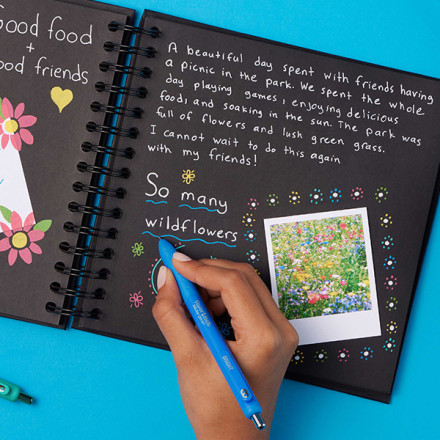 Good food
+
ood friends
A beautiful day spent with friends having
a picnic in the park. We spent the whole
day playing games, enjoying delicious
food, and soaking in the sun. The park was
full of flowers and lush green grass.
I cannot wait to do this again
with my friends!
So many
wildflowers